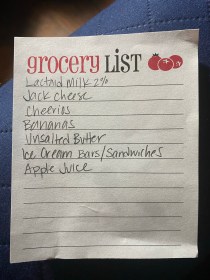 grocery LiST
Lactaid Milk 2%
Jack Cheese
Cheerios
Bananas
Unsalted Butter
Ice Cream Bars/Sandwiches
Apple Juice